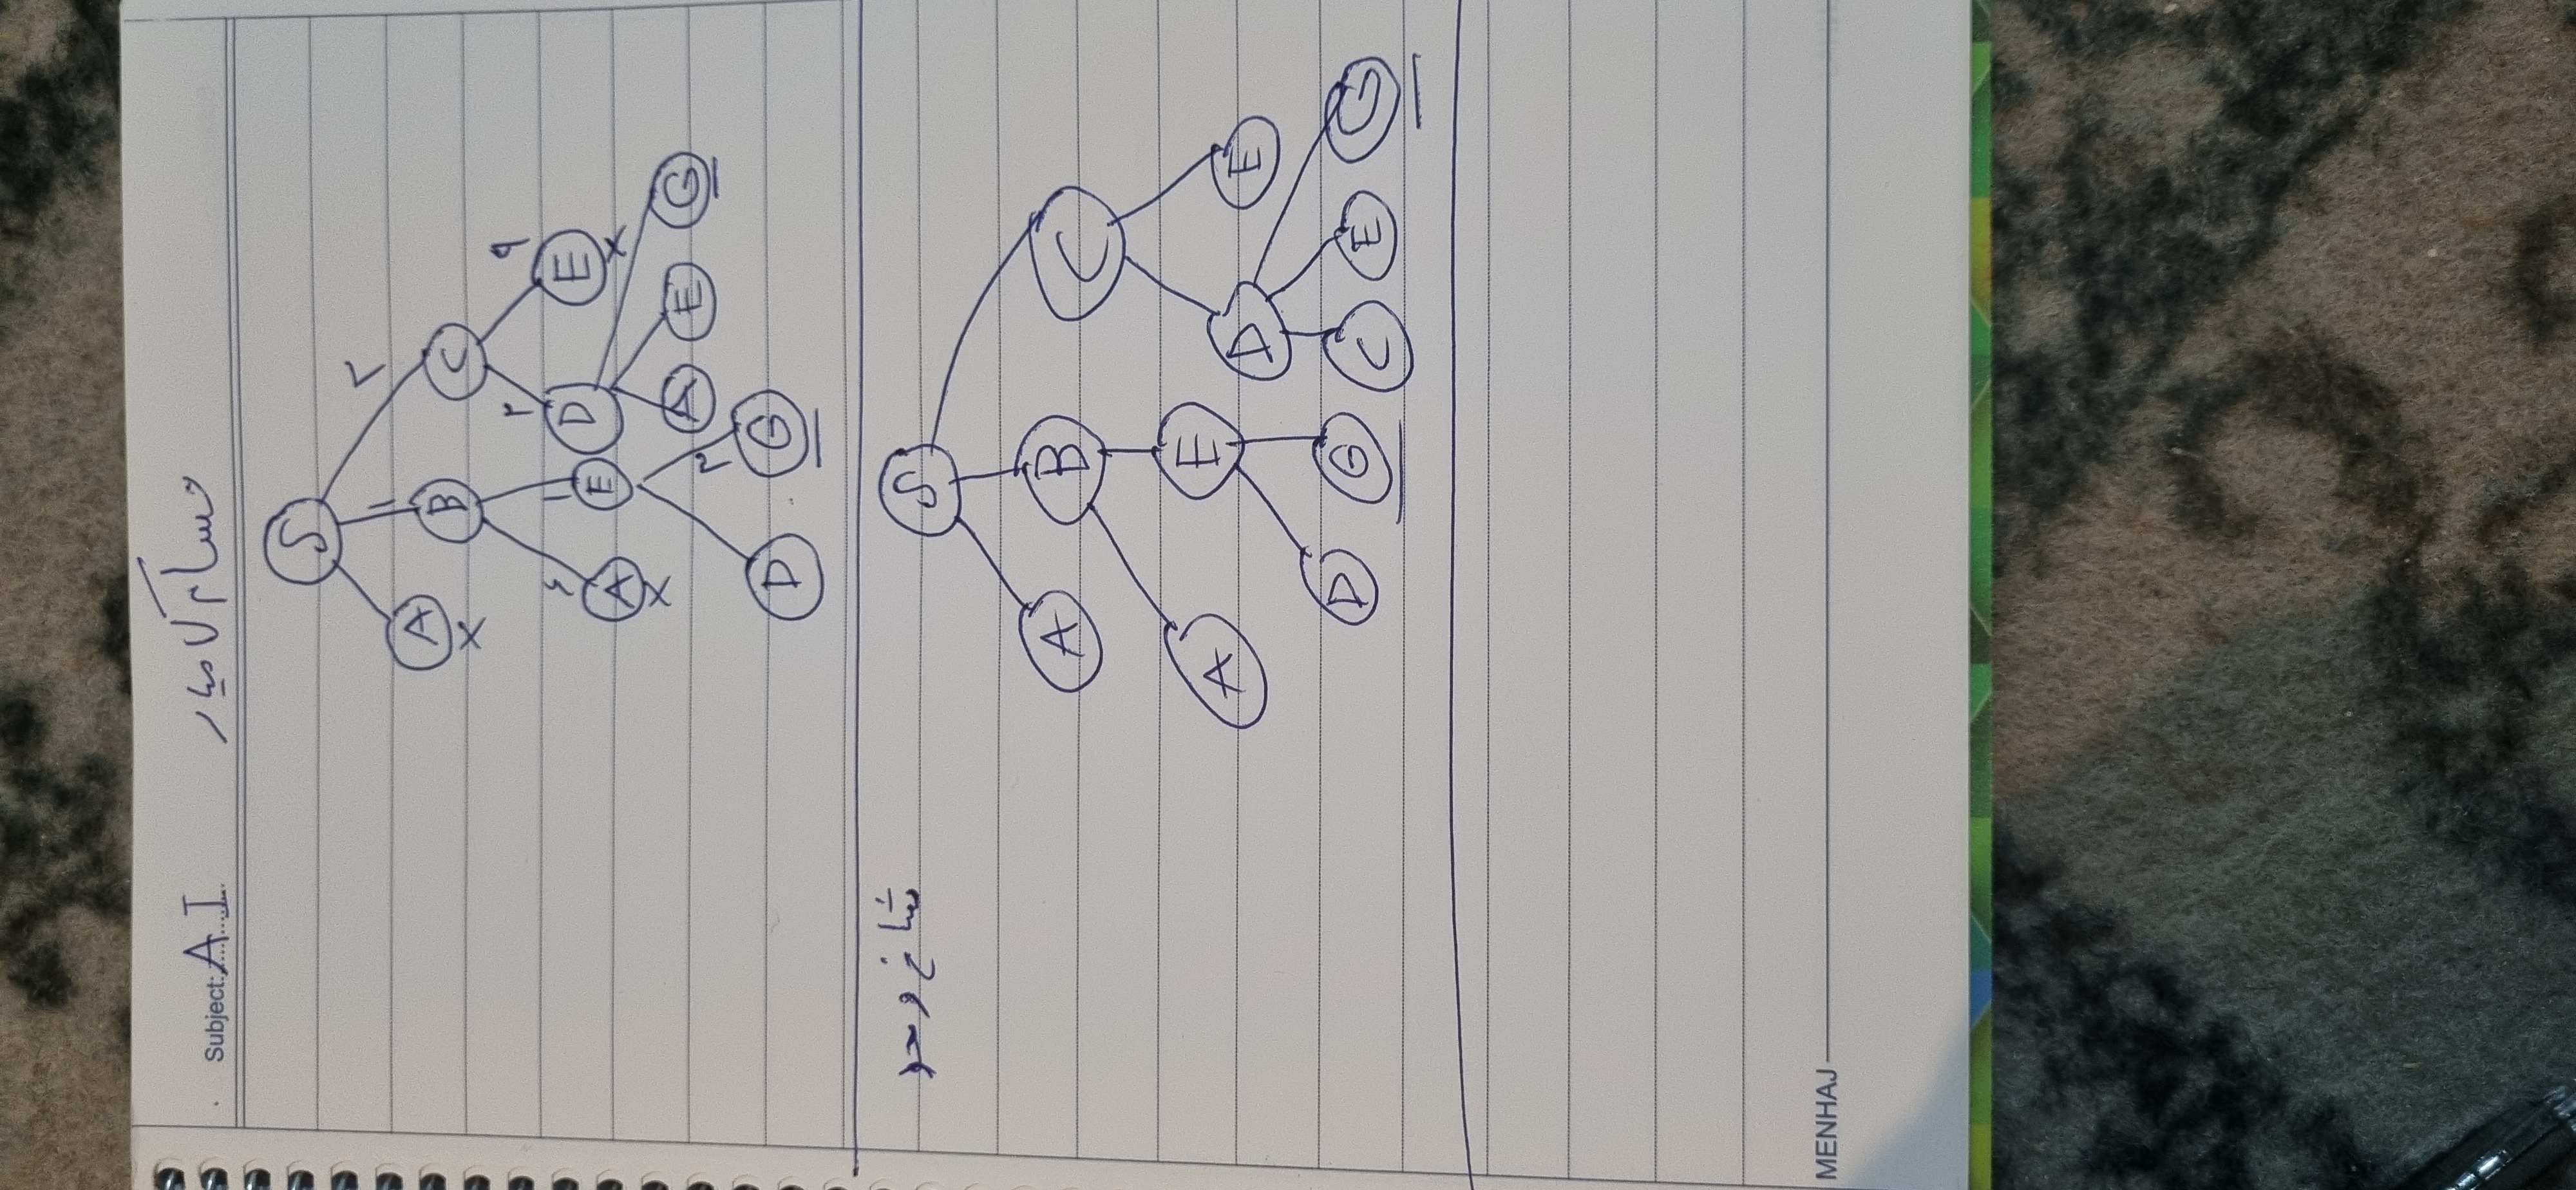 Subject: AI حسام کامیار
S
۲
۱
A B C
x
۲ ۹
۴ ۱
A E D E
x x
A E G
۳
D G
شاخ و حد
S
A B C
A E D E
D G C E G
MENHAJ